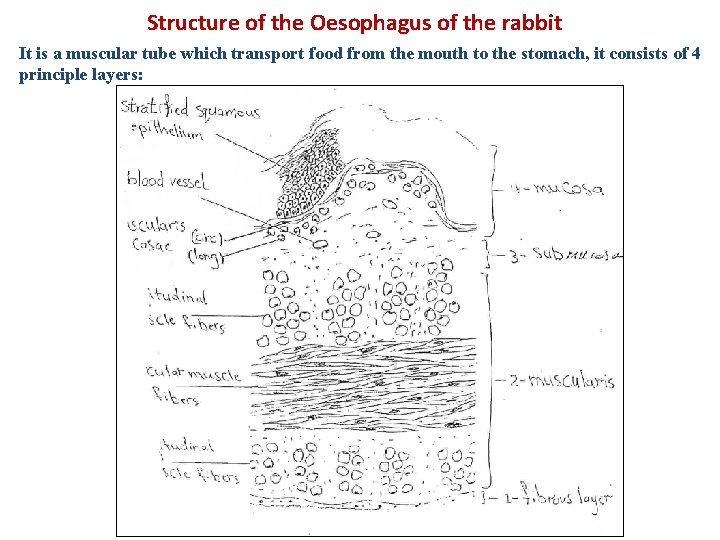 Structure of the Oesophagus of the rabbit
It is a muscular tube which transport food from the mouth to the stomach, it consists of 4
principle layers:
stratified squamous
epithelium
blood vessel
uscularis
cosae
(circ)
(long)
itudinal
scle fibers
cular muscle
fibers
itudinal
scle fibers
4-mucosa
3-submucosa
2-muscularis
1-fibrous layer